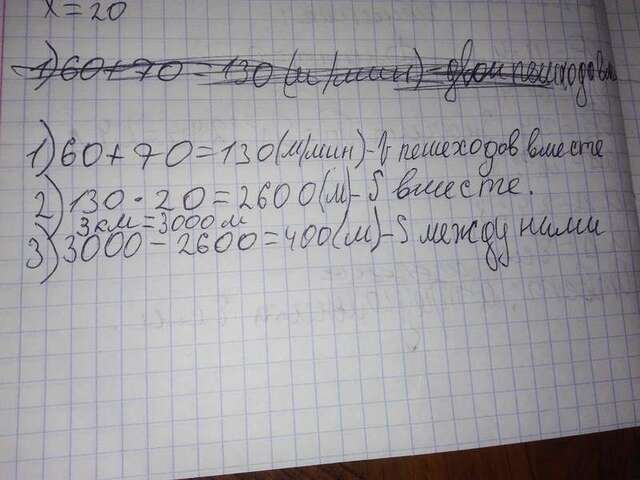 x=20
1) 60+70=130 (м/мин) - двои пешеходов
1) 60+70=130 (м/мин) - V пешеходов вместе
2) 130 · 20=2600 (м) - S вместе.
3км=3000 м
3) 3000-2600=400 (м) - S между ними